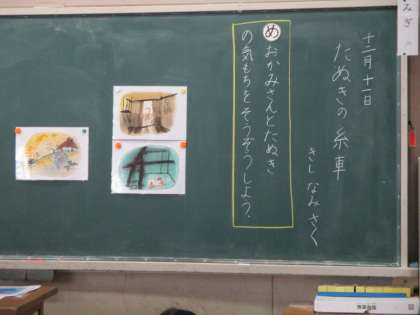 十二月十一日
たぬきの糸車
きし なみ さく
め おかみさんとたぬき
の気もちをそうぞうしよう。
みぎ